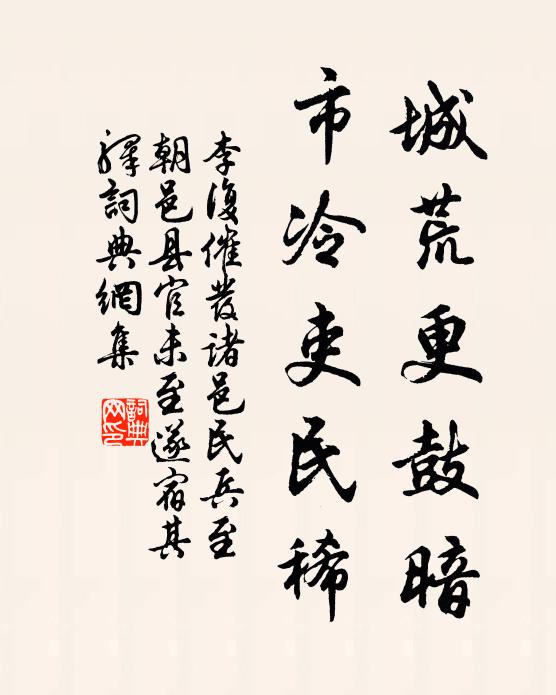 城荒更鼓暗
市冷吏民稀
李復催發諸邑民兵至
朝邑县官未至遂宿其
驛詞典網集
詞典
网印